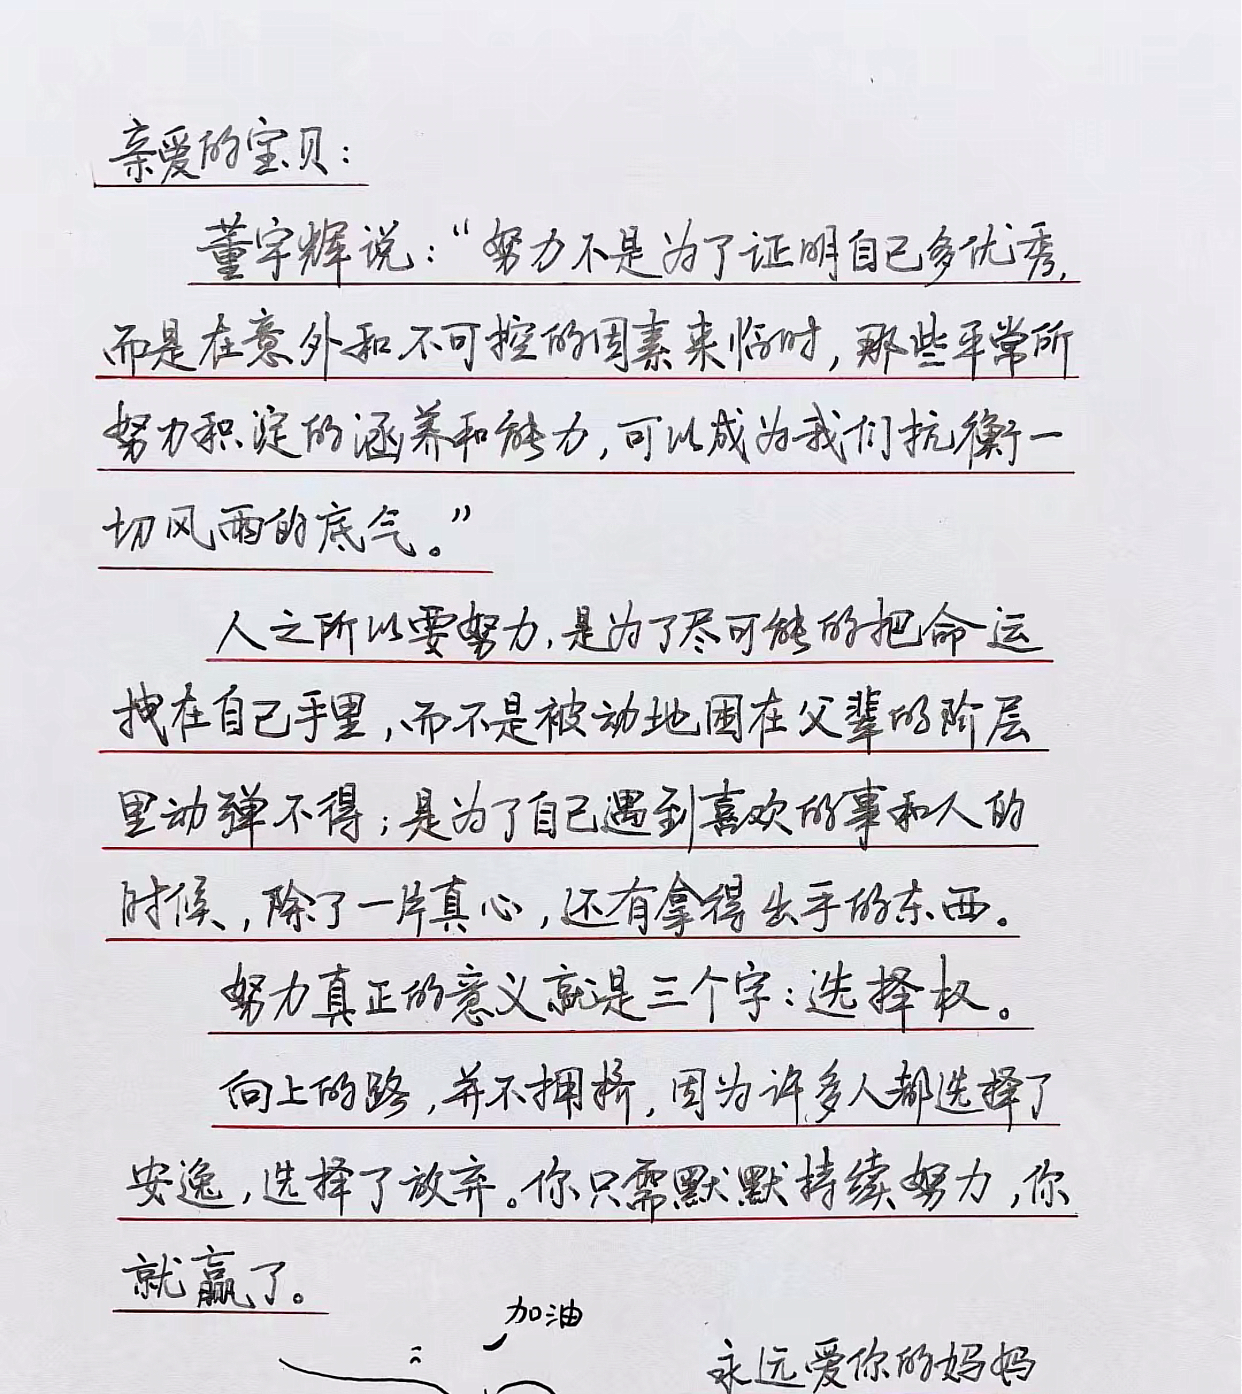 亲爱的宝贝：
董宇辉说：“努力不是为了证明自己多优秀，
而是在意外和不可控的因素来临时，那些平常所
努力积淀的涵养和能力，可以成为我们抗衡一
切风雨的底气。”
人之所以要努力，是为了尽可能的把命运
拽在自己手里，而不是被动地困在父辈的阶层
里动弹不得；是为了自己遇到喜欢的事和人的
时候，除了一片真心，还有拿得出手的东西。
努力真正的意义就是三个字：选择权。
向上的路，并不拥挤，因为许多人都选择了
安逸，选择了放弃。你只需默默持续努力，你
就赢了。
加油
永远爱你的妈妈